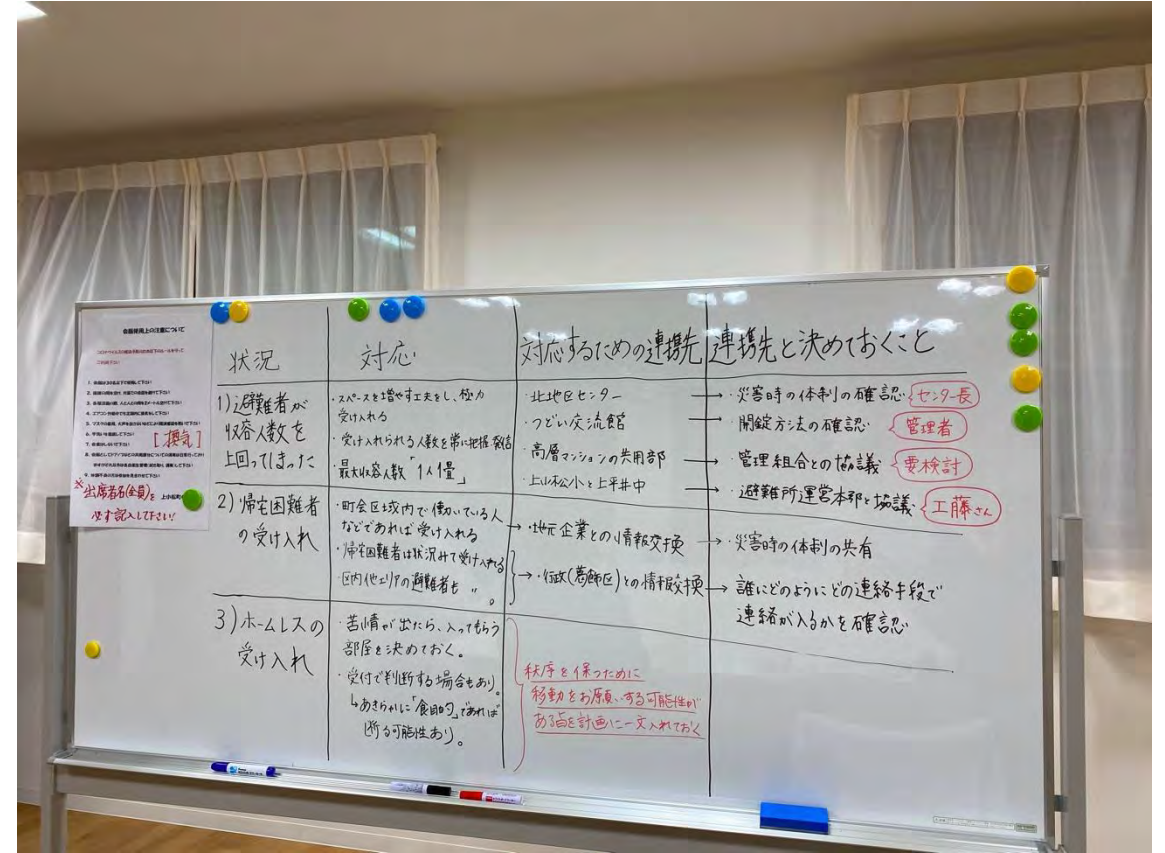 会館使用上の注意について
[換気]
※出席者名(全員)を
必ず記入して下さい!
状況
対応
対応するための連携先
連携先と決めておくこと
1)避難者が
収容人数を
上回ってしまった
・スペースを増やす工夫をし、極力
受け入れる
・受け入れられる人数を常に把握・発信
・最大収容人数「1人1畳」
・北地区センター
・つどい交流館
・高層マンションの共用部
・上小松小と上平井中
→・災害時の体制の確認
センター長
→・開錠方法の確認
管理者
→・管理組合との協議
要検討
→・避難所運営本部と協議
工藤さん
2)帰宅困難者
の受け入れ
・町会区域内で働いている人
などであれば受け入れる
・帰宅困難者は状況みて受け入れる
・区内他エリアの避難者も 〃 。
→・地元企業との情報交換
→・行政(葛飾区)との情報交換
→・災害時の体制の共有
→・誰にどのようにどの連絡手段で
連絡が入るかを確認
3)ホームレスの
受け入れ
・苦情が出たら、入ってもらう
部屋を決めておく。
・受付で判断する場合もあり。
↳あきらかに「食目的」であれば
断る可能性あり。
秩序を保つために
移動をお願いする可能性が
ある旨を計画に一文入れておく